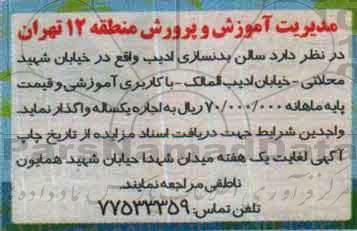 مدیریت آموزش و پرورش منطقه ۱۲ تهران
در نظر دارد سالن بدنسازی ادیب واقع در خیابان شهید
محلاتی - خیابان ادیب الممالک - با کاربری آموزشی و قیمت
پایه ماهانه ۷۰/۰۰۰/۰۰۰ ریال به اجاره یکساله واگذار نماید.
واجدین شرایط جهت دریافت اسناد مزایده از تاریخ چاپ
آگهی لغایت یک هفته میدان شهدا خیابان شهید همایون
ناطقی مراجعه نمایند.
تلفن تماس: ۷۷۵۳۳۳۵۹
ParsNamadData